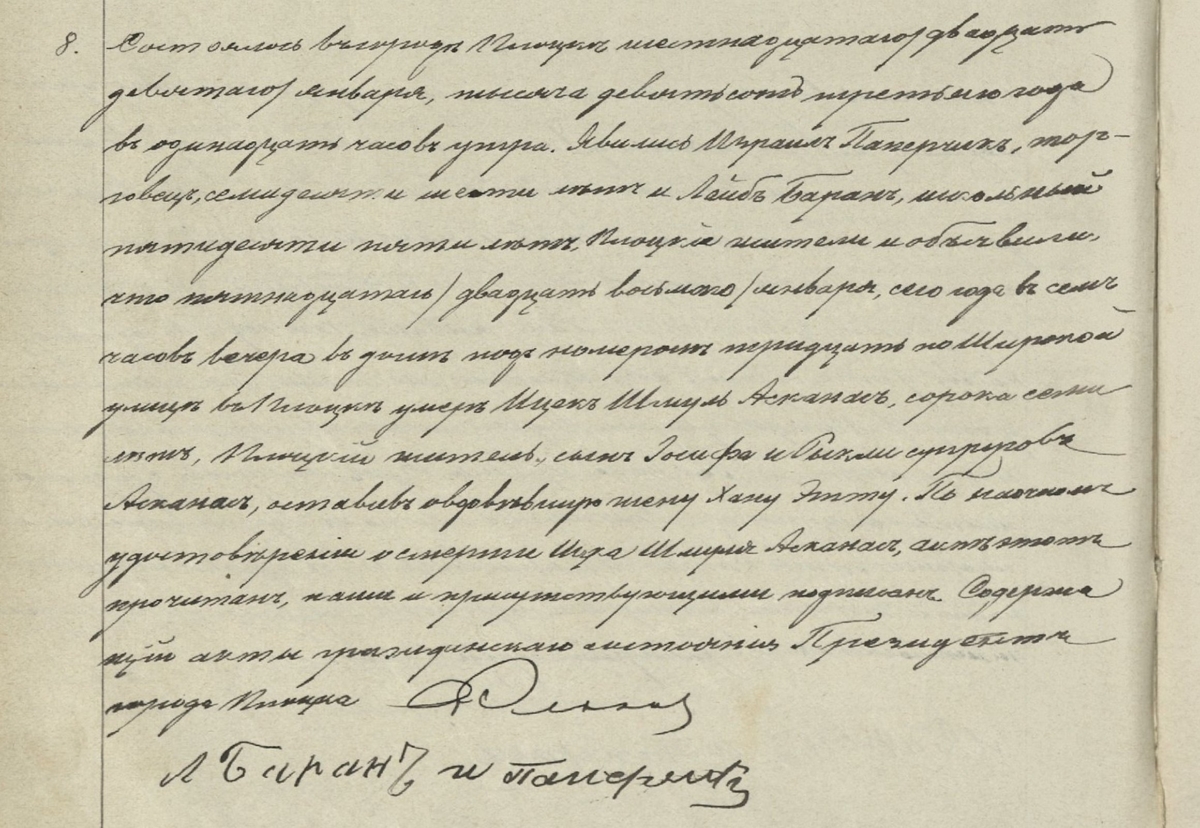 8. Состоялось въ городѣ Плоцкѣ шестнадцатаго /двадцать
девятаго/ января, тысяча девятьсотъ третьяго года
въ одинадцать часовъ утра. Явились Израиль Паперчикъ, тор-
говецъ, семидесяти и шести лѣтъ и Лейбъ Баранъ, школьный
пятидесяти пяти лѣтъ, Плоцкіе жители и объявили,
что пятнадцатаго /двадцать восьмого/ января, сего года въ семь
часовъ вечера въ домѣ подъ номеромъ тридцать по Широкой
улицѣ въ Плоцкѣ умеръ Ицекъ Шмуль Асканасъ, сорока семи
лѣтъ, Плоцкій житель, сынъ Іосифа и Рыкли супруговъ
Асканасъ, оставивъ овдовѣвшую жену Хану Этту. По наочномъ
удостовѣреніи о смерти Ицка Шмуля Асканасъ, актъ этотъ
прочитанъ, нами и присутствующими подписанъ. Содержа
щій акты гражданскаго состоянія Президентъ
города Плоцка
Л Баранъ И Паперчикъ